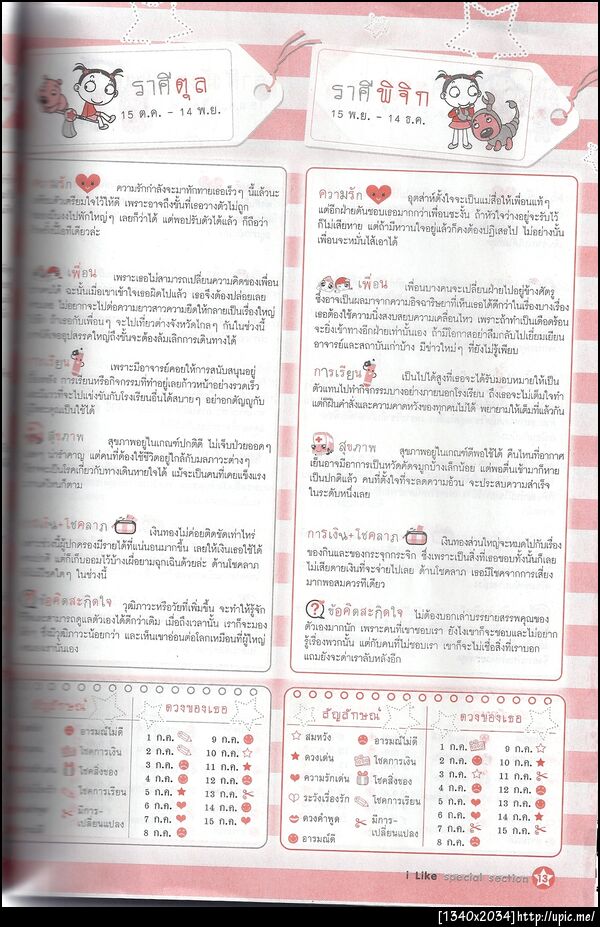 ราศีตุล
15 ต.ค. - 14 พ.ย.
ความรัก ความรักกำลังจะมาทักทายเธอเร็วๆ นี้แล้วนะ
เตรียมใจไว้ให้ดี เพราะอาจถึงขั้นที่เธอวางตัวไม่ถูก
ไปพักใหญ่ๆ เลยก็ว่าได้ แต่พอปรับตัวได้แล้ว ก็ถือว่า
ทีเดียวล่ะ
เพื่อน เพราะเธอไม่สามารถเปลี่ยนความคิดของเพื่อน
ได้ ฉะนั้นเมื่อเขาเข้าใจเธอผิดไปแล้ว เธอจึงต้องปล่อยเลย
ไม่อยากจะไปต่อความยาวสาวความยืดให้กลายเป็นเรื่องใหญ่
ถ้าเธอกับเพื่อนๆ จะไปเที่ยวต่างจังหวัดไกลๆ กันในช่วงนี้
อุปสรรคใหญ่ถึงขั้นจะต้องล้มเลิกการเดินทางได้
การเรียน เพราะมีอาจารย์คอยให้การสนับสนุนอยู่
การเรียนหรือกิจกรรมที่ทำอยู่เลยก้าวหน้าอย่างรวดเร็ว
ที่จะไปแข่งขันกับโรงเรียนอื่นได้สบายๆ อย่าอกตัญญูกับ
คุณเป็นใช้ได้
สุขภาพ สุขภาพอยู่ในเกณฑ์ปกติดี ไม่เจ็บป่วยออดๆ
น่ารำคาญ แต่คนที่ต้องใช้ชีวิตอยู่ใกล้กับมลภาวะต่างๆ
เป็นโรคเกี่ยวกับทางเดินหายใจได้ แม้จะเป็นคนที่เคยแข็งแรง
ก็ตาม
การเงิน+โชคลาภ เงินทองไม่ค่อยติดขัดเท่าไหร่
ช่วงนี้ผู้ปกครองมีรายได้ที่แน่นอนมากขึ้น เลยให้เงินเธอใช้ได้
แต่ก็เก็บออมไว้บ้างเผื่อยามฉุกเฉินด้วยล่ะ ด้านโชคลาภ
โชคใดๆ ในช่วงนี้
ข้อคิดสะกิดใจ วุฒิภาวะหรือวัยที่เพิ่มขึ้น จะทำให้รู้จัก
และสามารถดูแลตัวเองได้ดีกว่าเดิม เมื่อถึงเวลานั้น เราก็จะมอง
ซึ่งมีวุฒิภาวะน้อยกว่า และเห็นเขาอ่อนต่อโลกเหมือนที่ผู้ใหญ่
เรานั่นเอง
ดวงของเธอ
อารมณ์ไม่ดี
โชคการเงิน
โชคสิ่งของ
โชคการเรียน
มีการ-
เปลี่ยนแปลง
1 ก.ค. 9 ก.ค.
2 ก.ค. 10 ก.ค.
3 ก.ค. 11 ก.ค.
4 ก.ค. 12 ก.ค.
5 ก.ค. 13 ก.ค.
6 ก.ค. 14 ก.ค.
7 ก.ค. 15 ก.ค.
8 ก.ค.
ราศีพิจิก
15 พ.ย. - 14 ธ.ค.
ความรัก อุตส่าห์ตั้งใจจะเป็นแม่สื่อให้เพื่อนแท้ๆ
แต่อีกฝ่ายดันชอบเธอมากกว่าเพื่อนซะงั้น ถ้าหัวใจว่างอยู่จะรับไว้
ก็ไม่เสียหาย แต่ถ้ามีหวานใจอยู่แล้วก็คงต้องปฏิเสธไป ไม่อย่างนั้น
เพื่อนจะหมั่นไส้เอาได้
เพื่อน เพื่อนบางคนจะเปลี่ยนฝ่ายไปอยู่ข้างศัตรู
ซึ่งอาจเป็นผลมาจากความอิจฉาริษยาที่เห็นเธอได้ดีกว่าในเรื่องบางเรื่อง
เธอต้องใช้ความนิ่งสงบสยบความเคลื่อนไหว เพราะถ้าทำเดือดร้อน
จะยิ่งเข้าทางอีกฝ่ายเท่านั้นเอง ถ้ามีโอกาสอย่าลืมกลับไปเยี่ยมเยียน
อาจารย์และสถาบันเก่าบ้าง มีข่าวใหม่ๆ ที่ยังไม่รู้เพียบ
การเรียน เป็นไปได้สูงที่เธอจะได้รับมอบหมายให้เป็น
ตัวแทนไปทำกิจกรรมบางอย่างภายนอกโรงเรียน ถึงเธอจะไม่เต็มใจทำ
แต่ก็ฝืนคำสั่งและความคาดหวังของทุกคนไม่ได้ พยายามให้เต็มที่แล้วกัน
สุขภาพ สุขภาพอยู่ในเกณฑ์ดีพอใช้ได้ คืนไหนที่อากาศ
เย็นอาจมีอาการเป็นหวัดคัดจมูกบ้างเล็กน้อย แต่พอตื่นเช้ามาก็หาย
เป็นปกติแล้ว คนที่ตั้งใจที่จะลดความอ้วน จะประสบความสำเร็จ
ในระดับหนึ่งเลย
การเงิน+โชคลาภ เงินทองส่วนใหญ่จะหมดไปกับเรื่อง
ของกินและของกระจุกกระจิก ซึ่งเพราะเป็นสิ่งที่เธอชอบทั้งนั้นก็เลย
ไม่เสียดายเงินที่จะจ่ายไปเลย ด้านโชคลาภ เธอมีโชคจากการเสี่ยง
มากพอสมควรทีเดียว
ข้อคิดสะกิดใจ ไม่ต้องบอกเล่าบรรยายสรรพคุณของ
ตัวเองมากนัก เพราะคนที่เขาชอบเรา ยังไงเขาก็จะชอบและไม่อยาก
รู้เรื่องพวกนั้น แต่กับคนที่ไม่ชอบเรา เขาก็จะไม่เชื่อสิ่งที่เราบอก
แถมยังจะด่าเราลับหลังอีก
สัญลักษณ์
สมหวัง อารมณ์ไม่ดี
ดวงเด่น โชคการเงิน
ความรักเด่น โชคสิ่งของ
ระวังเรื่องรัก โชคการเรียน
ดวงคำพูด มีการ-
เปลี่ยนแปลง
อารมณ์ดี
ดวงของเธอ
1 ก.ค. 9 ก.ค.
2 ก.ค. 10 ก.ค.
3 ก.ค. 11 ก.ค.
4 ก.ค. 12 ก.ค.
5 ก.ค. 13 ก.ค.
6 ก.ค. 14 ก.ค.
7 ก.ค. 15 ก.ค.
8 ก.ค.
i Like special section 13
[1340x2034]http://upic.me/